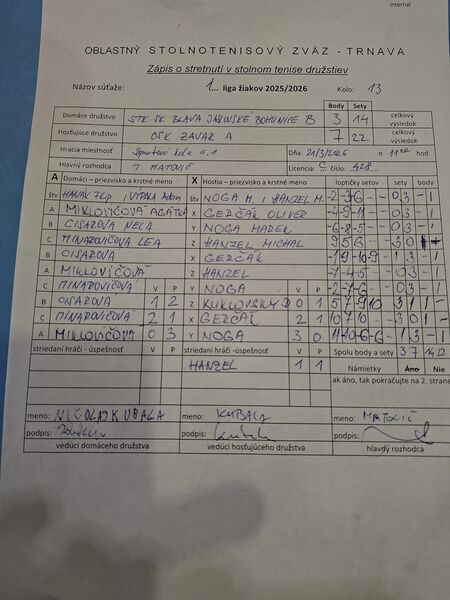 internal
OBLASTNÝ STOLNOTENISOVÝ ZVÄZ - TRNAVA
Zápis o stretnutí v stolnom tenise družstiev
Názov súťaže: 1... liga žiakov 2025/2026 Kolo: 13
Body Sety
Domáce družstvo STK SK BLAVA JASLOVSKE BOHUNICE B 3 14 celkový výsledok
Hosťujúce družstvo OŠK ZAVAR A 7 22 celkový výsledok
Hracia miestnosť Športová hala Dňa: 21/3/2026 o 11 00 hod.
Hlavný rozhodca T. MATOVIČ Licencia: číslo: 428
A Domáci – priezvisko a krstné meno X Hostia – priezvisko a krstné meno loptičky setov sety body
štv štv NOGA M. / HANZEL M. -2-36 - - 03 -1
A MIKLOVIČOVÁ AGÁTA X GERČÁK OLIVER -4-9-11 - - 03 -1
B CISAROVA NELA Y NOGA MAREK -6-8-5 - - 03 -1
C MINAROVIČOVÁ LEA Z HANZEL MICHAL 956 - - 30
B CISAROVA X GERČÁK -19-10-9 -13 -1
A MIKLOVIČOVÁ Z HANZEL -7-4-5 - - 03 -1
C MINAROVIČOVÁ V P Y NOGA V P -2-7-6 - - 03 -1
B CISAROVA 1 2 Z KUKLOVSKY D 0 1 57-910 31 1 -
C MINAROVIČOVA 2 1 X GERČÁK 2 1
A MIKLOVIČOVÁ 0 3 Y NOGA 3 0
striedaní hráči - úspešnosť V P striedaní hráči - úspešnosť V P Spolu body a sety 37 14 22
HANZEL 1 1 Námietky Áno Nie
ak áno, tak pokračujte na 2. strane
meno: NICOLAS KUBALA meno: KUBALA meno: MATOVIČ
podpis: podpis: podpis:
vedúci domáceho družstva vedúci hosťujúceho družstva hlavný rozhodca